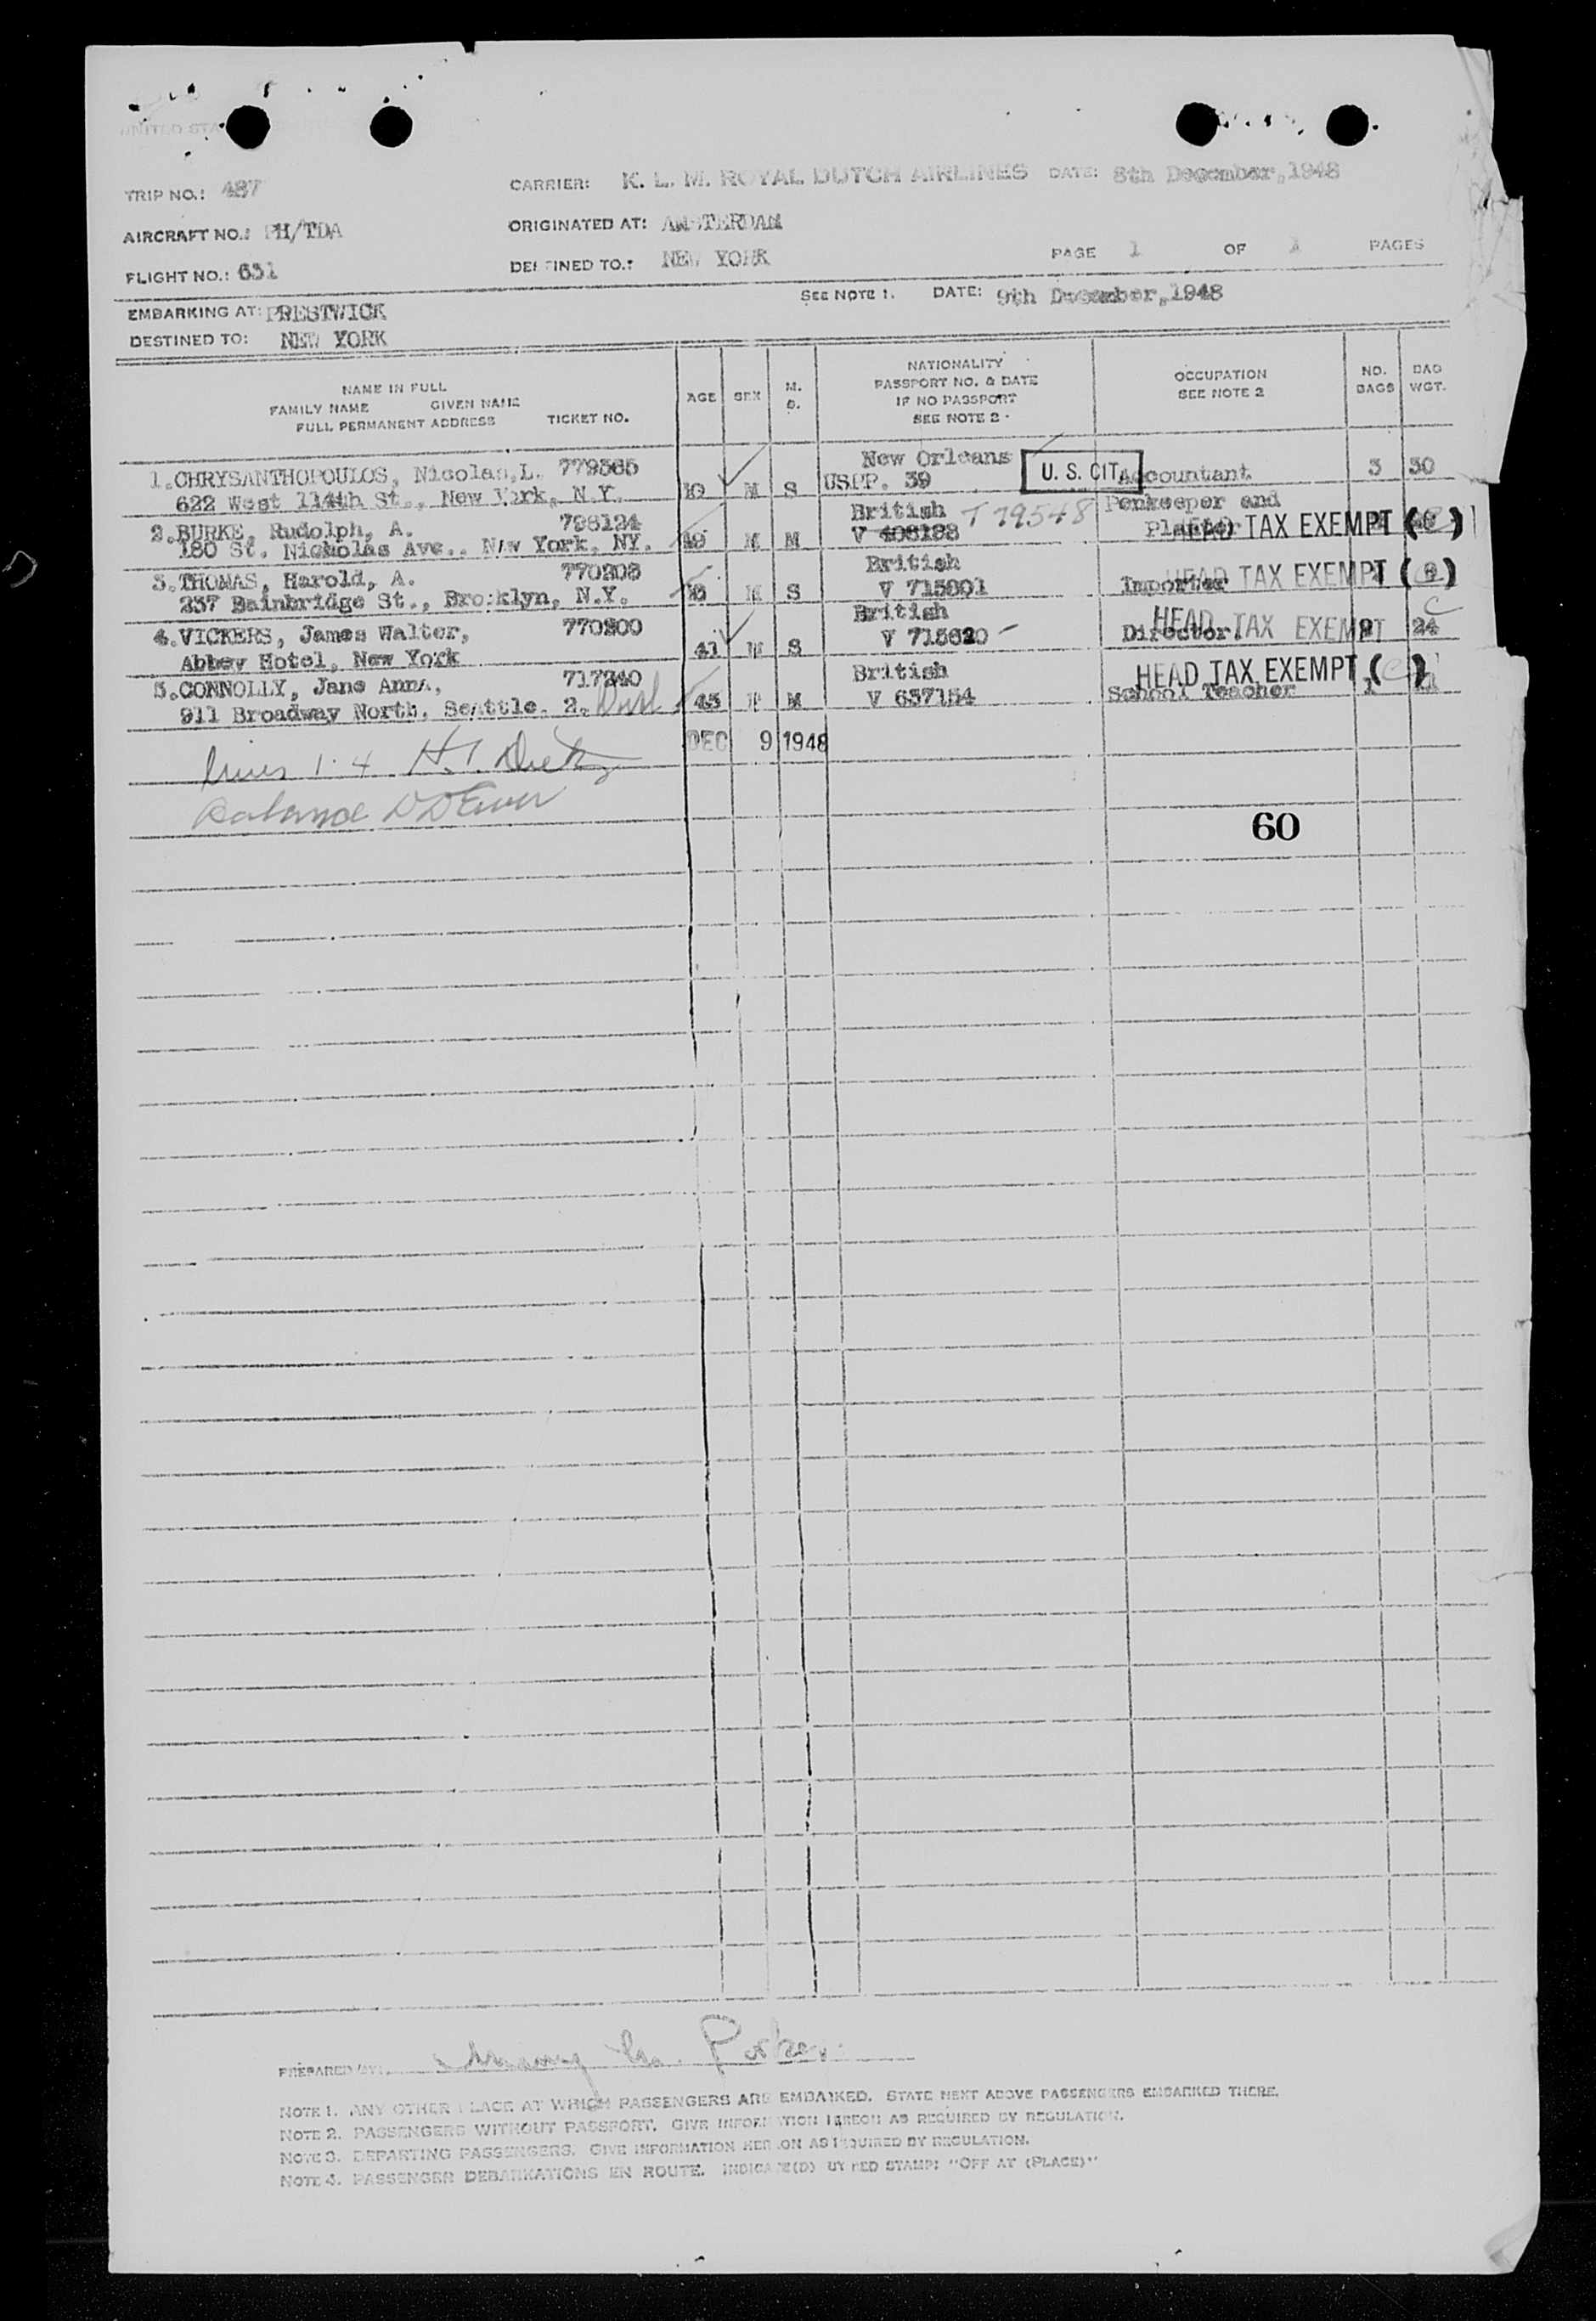 TRIP NO.: 487
CARRIER: K. L. M. ROYAL DUTCH AIRLINES DATE: 8th December,1948
AIRCRAFT NO.: PH/TDA
ORIGINATED AT: AMSTERDAM
FLIGHT NO.: 631
DESTINED TO.: NEW YORK
PAGE 1 OF 1 PAGES
SEE NOTE 1. DATE: 9th December,1948
EMBARKING AT: PRESTWICK
DESTINED TO: NEW YORK
NAME IN FULL
FAMILY NAME GIVEN NAME
FULL PERMANENT ADDRESS TICKET NO.
AGE SEX M. S.
NATIONALITY
PASSPORT NO. & DATE
IF NO PASSPORT
SEE NOTE 2
OCCUPATION
SEE NOTE 2
NO. BAGS
BAG WGT.
1.CHRYSANTHOPOULOS, Nicolas,L. 779365 New Orleans
622 West 114th St., New York, N.Y. M S USPP. 39 U. S. CIT. Accountant 3 30
2.BURKE, Rudolph, A. 798124 British T 79548 Penkeeper and
180 St. Nicholas Ave., New York, NY. 49 M M V 408188 Planter HEAD TAX EXEMPT (C)
3.THOMAS, Harold, A. 770208 British
237 Bainbridge St., Brooklyn, N.Y. M S V 715801 Importer HEAD TAX EXEMPT ( )
4.VICKERS, James Walter, 770200 British HEAD TAX EXEMPT C
Abbey Hotel, New York 41 M S V 715620 Director 2 24
5.CONNOLLY, Jane Anna, 717240 British HEAD TAX EXEMPT (C)
911 Broadway North, Seattle. 2. Wash 45 F M V 657154 School Teacher 1
DEC 9 1948
Lines 1-4 H.T.
Balance
60
PREPARED BY: Parker
NOTE 1. ANY OTHER PLACE AT WHICH PASSENGERS ARE EMBARKED. STATE NEXT ABOVE PASSENGERS EMBARKED THERE.
NOTE 2. PASSENGERS WITHOUT PASSPORT. GIVE INFORMATION HEREON AS REQUIRED BY REGULATION.
NOTE 3. DEPARTING PASSENGERS. GIVE INFORMATION HEREON AS REQUIRED BY REGULATION.
NOTE 4. PASSENGER DEBARKATIONS EN ROUTE. INDICATE(D) BY RED STAMP: "OFF AT (PLACE)"